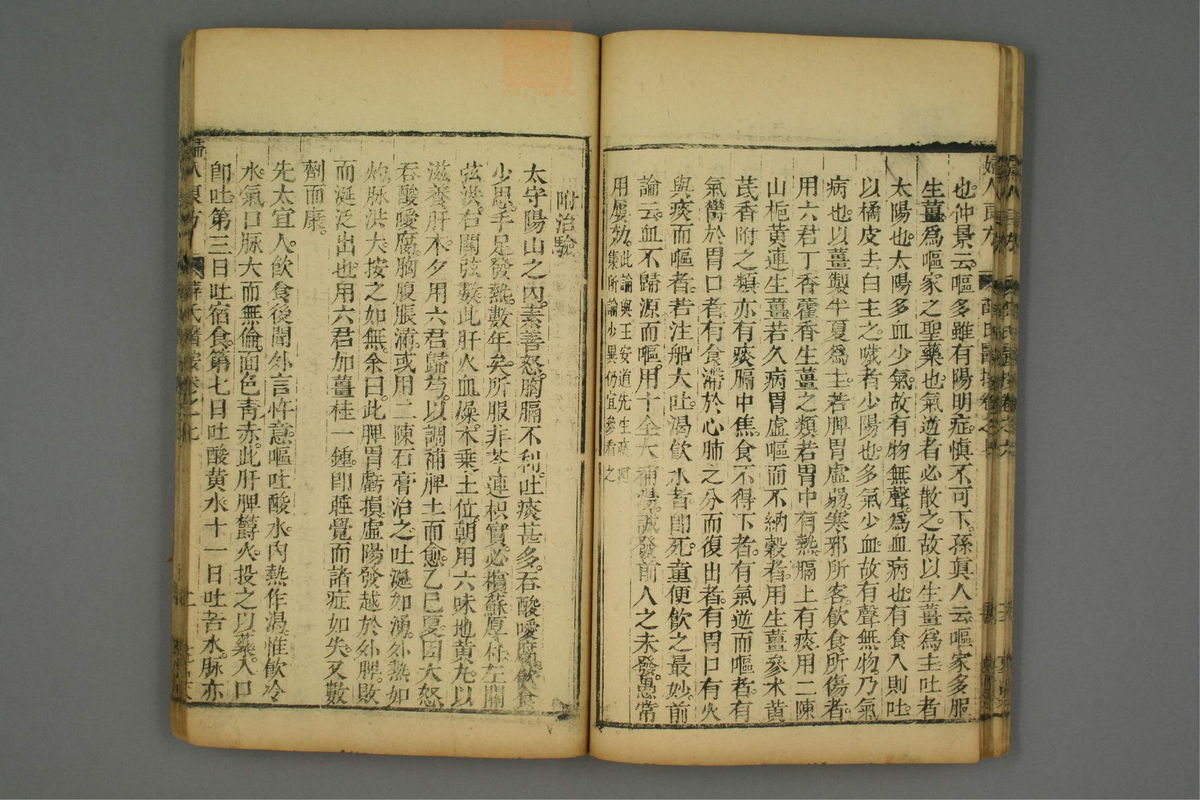 也仲景云嘔多雖有陽明症慎不可下孫真人云嘔家多服
生薑為嘔家之聖藥也氣逆者必散之故以生薑為主吐者
太陽也太陽多血少氣故有物無聲為血病也有食入則吐
以橘皮去白主之噦者少陽也多氣少血故有聲無物乃氣
病也以薑製半夏為主若脾胃虛弱寒邪所客飲食所傷者
用六君丁香藿香生薑之類若胃中有熱膈上有痰用二陳
山梔黃連生薑若久病胃虛嘔而不納穀者用生薑參术黃
芪香附之類亦有痰膈中焦食不得下者有氣逆而嘔者有
氣鬱於胃口者有食滯於心肺之分而復出者有胃口有火
與痰而嘔者若注船大吐渴飲水者即死童便飲之最妙前
論云血不歸源而嘔用十全大補湯誠發前人之未發愚常
用屢効此論與王安道先生
集所論少異仍宜參看之
附治驗
太守陽山之內素善怒胸膈不利吐痰甚多吞酸噯腐飲食
少思手足發熱數年矣所服非芩連枳實必檳蘇厚朴左關
弦洪右關弦數此肝火血燥木乘土位朝用六味地黃丸以
滋養肝木夕用六君歸芍以調補脾土而愈乙巳夏因大怒
吞酸噯腐胸腹脹滿或用二陳石膏治之吐涎如湧外熱如
灼脉洪大按之如無余曰此脾胃虧損虛陽發越於外脾敗
而涎泛出也用六君加薑桂一鍾即睡覺而諸症如失又數
劑而康
先太宜人飲食後聞外言忤意嘔吐酸水內熱作渴惟飲冷
水氣口脉大而無倫面色青赤此肝脾鬱火投之以藥入口
即吐第三日吐宿食第七日吐酸黃水十一日吐苦水脉亦
婦人良方
薛氏醫按卷之十七